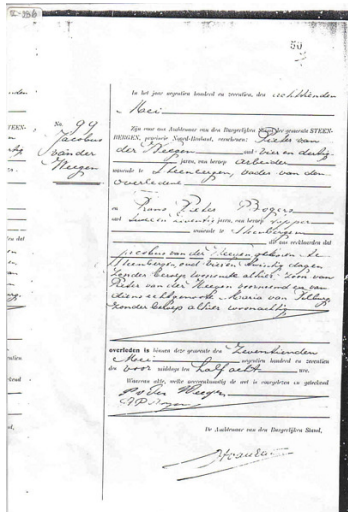 50
In het jaar negentien honderd en zeventien, den achttienden
Mei
Zijn voor ons Ambtenaar van den Burgerlijken Stand der gemeente STEEN-
BERGEN, provincie Noord-Brabant, verschenen: Pieter van
der Weegen oud vier en dertig
jaren, van beroep arbeider
wonende te Steenbergen, vader van den
overledene
en Frans Pieter Bogers
oud jaren, van beroep
wonende te Steenbergen
die ons verklaarden dat
Jacobus van der Weegen geboren te
Steenbergen, oud dagen
zonder beroep wonende alhier zoon van
Pieter van der Weegen voornoemd en van
diens echtgenoote Maria van Tilburg
zonder beroep alhier woonachtig
overleden is binnen deze gemeente den zeventienden
Mei negentien honderd en zeventien
des voor middags ten half acht ure.
Waarvan akte, welke overeenkomstig de wet is voorgelezen en geteekend
P v der Weegen
De Ambtenaar van den Burgerlijken Stand,
No. 99
Jacobus
van der
Weegen